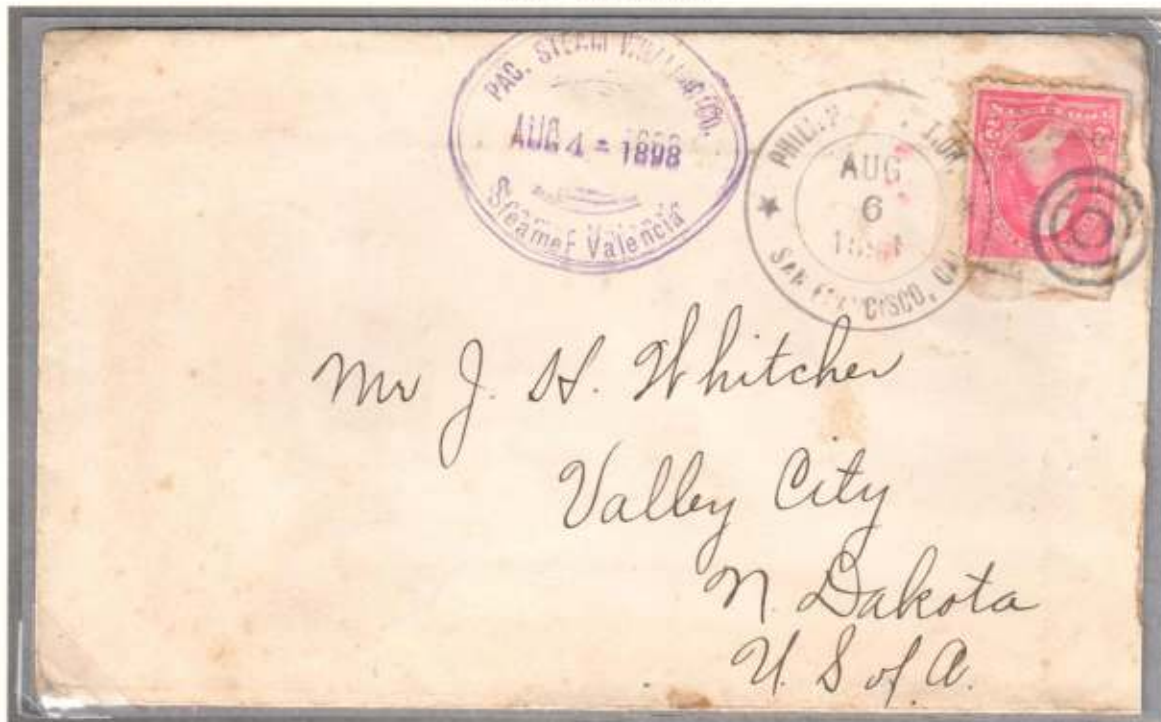 PAC. STEAM CO.
AUG 4 - 1898
Steamer Valencia
AUG
6
SAN FRANCISCO, CAL
Mr J. H. Whitcher
Valley City
N. Dakota
U. S of A.